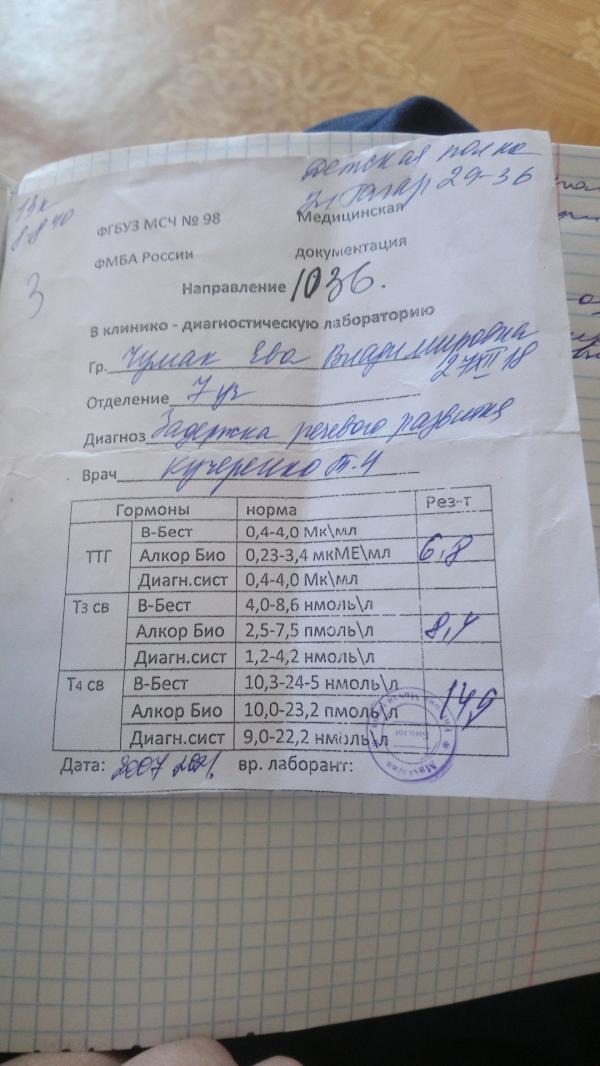 Детская пол-ка
13к
8-8 40
3
ФГБУЗ МСЧ № 98
Медицинская
ФМБА России
документация
Направление 1036.
В клинико - диагностическую лабораторию
Гр. Чумак Ева Владимировна
27 VIII 18
Отделение 7 уч
Диагноз Задержка речевого развития
Врач Кучеренко Т.И
Гормоны норма Рез-т
ТТГ В-Бест 0,4-4,0 Мк\мл
Алкор Био 0,23-3,4 мкМЕ\мл 6,8
Диагн.сист 0,4-4,0 Мк\мл
Т3 св В-Бест 4,0-8,6 нмоль\л
Алкор Био 2,5-7,5 пмоль\л 8,4
Диагн.сист 1,2-4,2 нмоль\л
Т4 св В-Бест 10,3-24-5 нмоль\л 14,9
Алкор Био 10,0-23,2 пмоль\л
Диагн.сист 9,0-22,2 нмоль\л
Дата: 2007 2021. вр. лаборант: